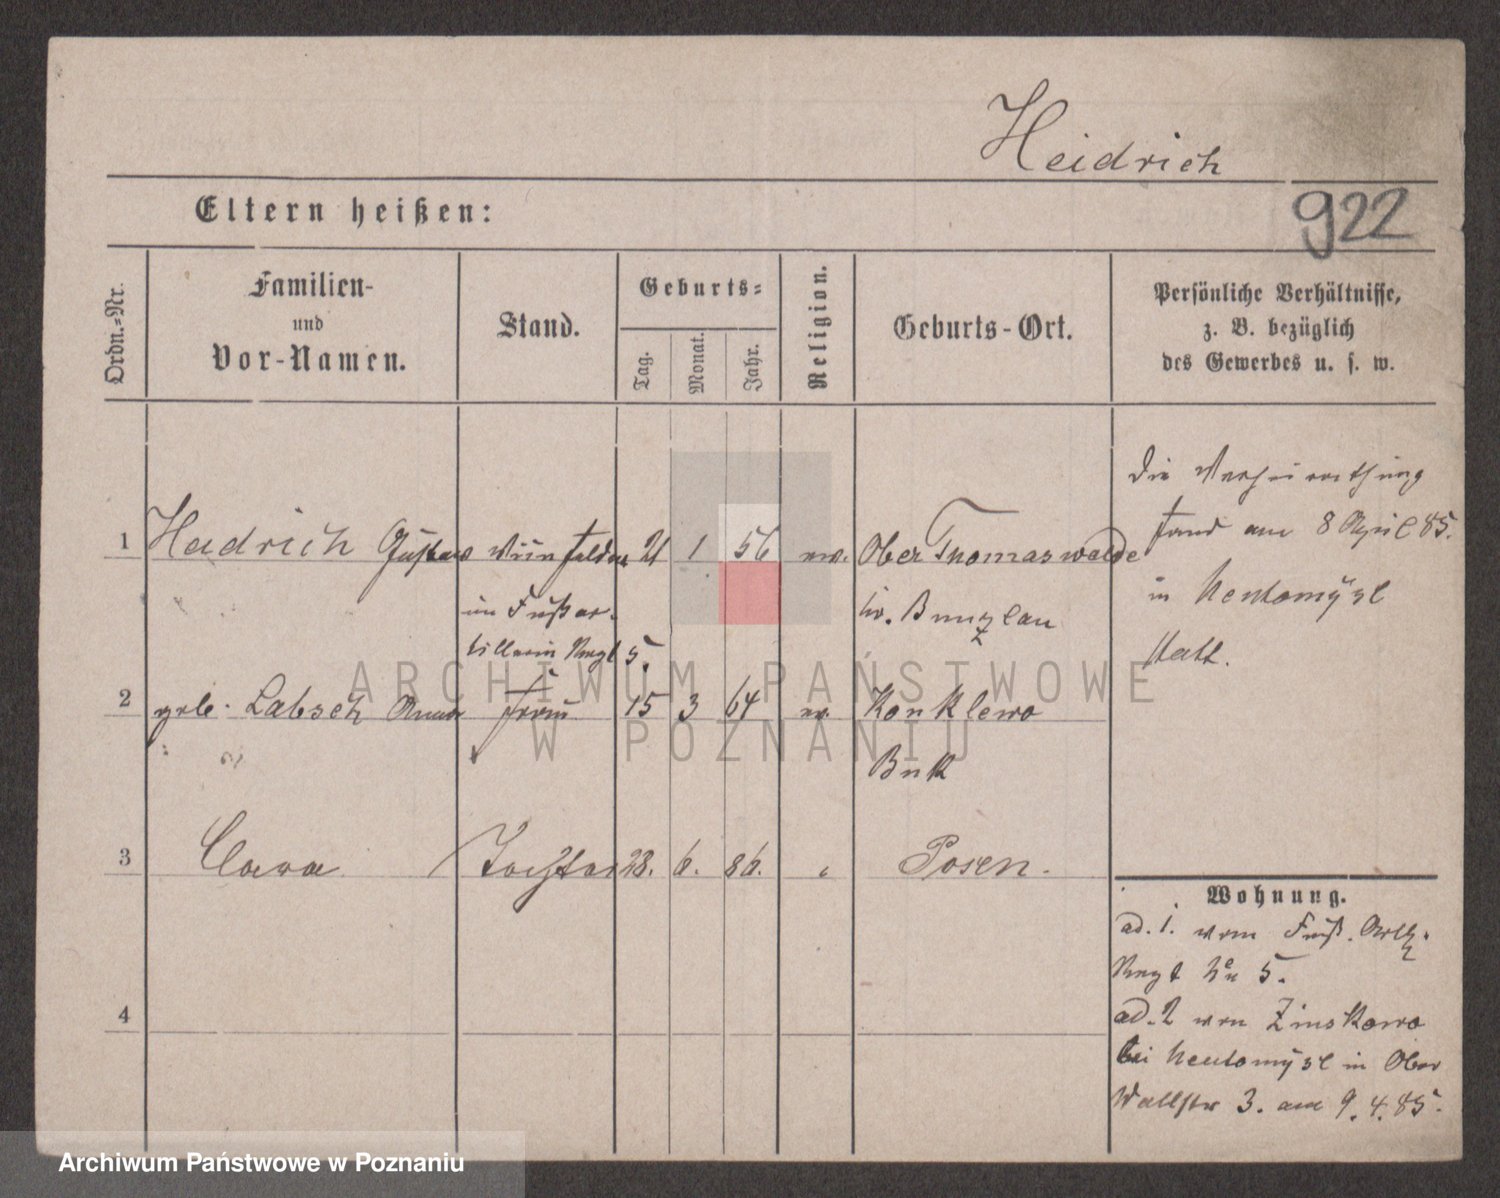 Heidrich
Eltern heißen:
922
Ordn.=Nr.
Familien-
und
Vor-Namen.
Stand.
Geburts=
Tag.
Monat.
Jahr.
Religion.
Geburts-Ort.
Persönliche Verhältnisse,
z. B. bezüglich
des Gewerbes u. s. w.
Die Verheirathung
fand am 8 April 85.
in Neutomysl
statt.
1 Heidrich Gustav 21 1 56 ev. Ober Thomaswalde
im Fußar-
tillerie Regt 5.
Kr. Bunzlau
2 geb. Labsch Anna Frau 15 3 64 ev. Konklewo
Buk
3 Clara Tochter 28. 6. 86. Posen.
4
Wohnung.
ad. 1. vom Fuß. Art.
Regt No 5.
ad. 2 von Zinskowo
bei Neutomysl in Ober
Wallstr 3. am 9.4.85.
ARCHIWUM PAŃSTWOWE
W POZNANIU
Archiwum Państwowe w Poznaniu